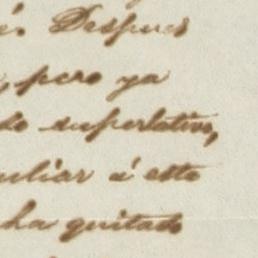 é. Despues
, pero ya
do superlativo,
culiar á esta
ha quitado